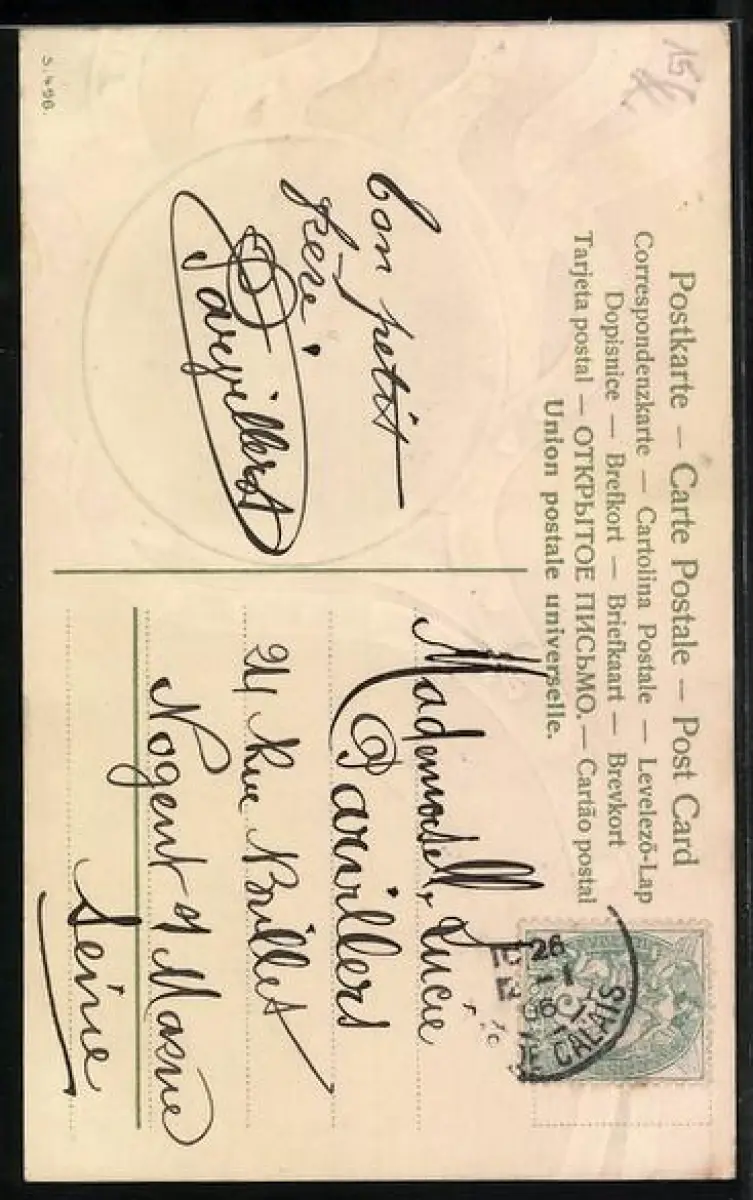 Postkarte — Carte Postale — Post Card
Correspondenzkarte — Cartolina Postale — Levelező-Lap
Dopisnice — Brefkort — Briefkaart — Brevkort
Tarjeta postal — ОТКРЫТОЕ ПИСЬМО. — Cartão postal
Union postale universelle.
CALAIS
26
ton petit
Parvillers
Mademoiselle Lucie
Parvillers
24 Rue Brillet
Nogent s/ Marne
Seine
S. 496.
15